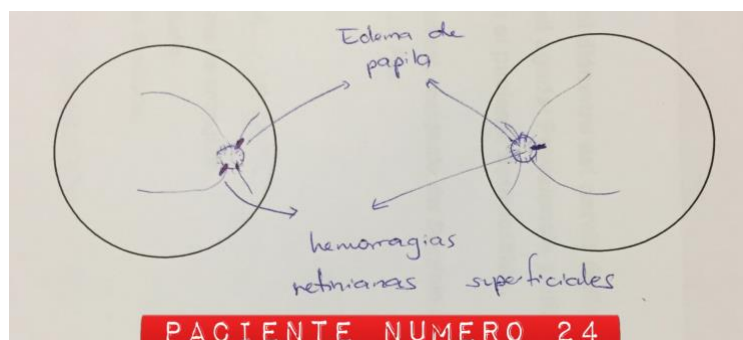 Edema de
papila
hemorragias
retinianas superficiales
PACIENTE NUMERO 24